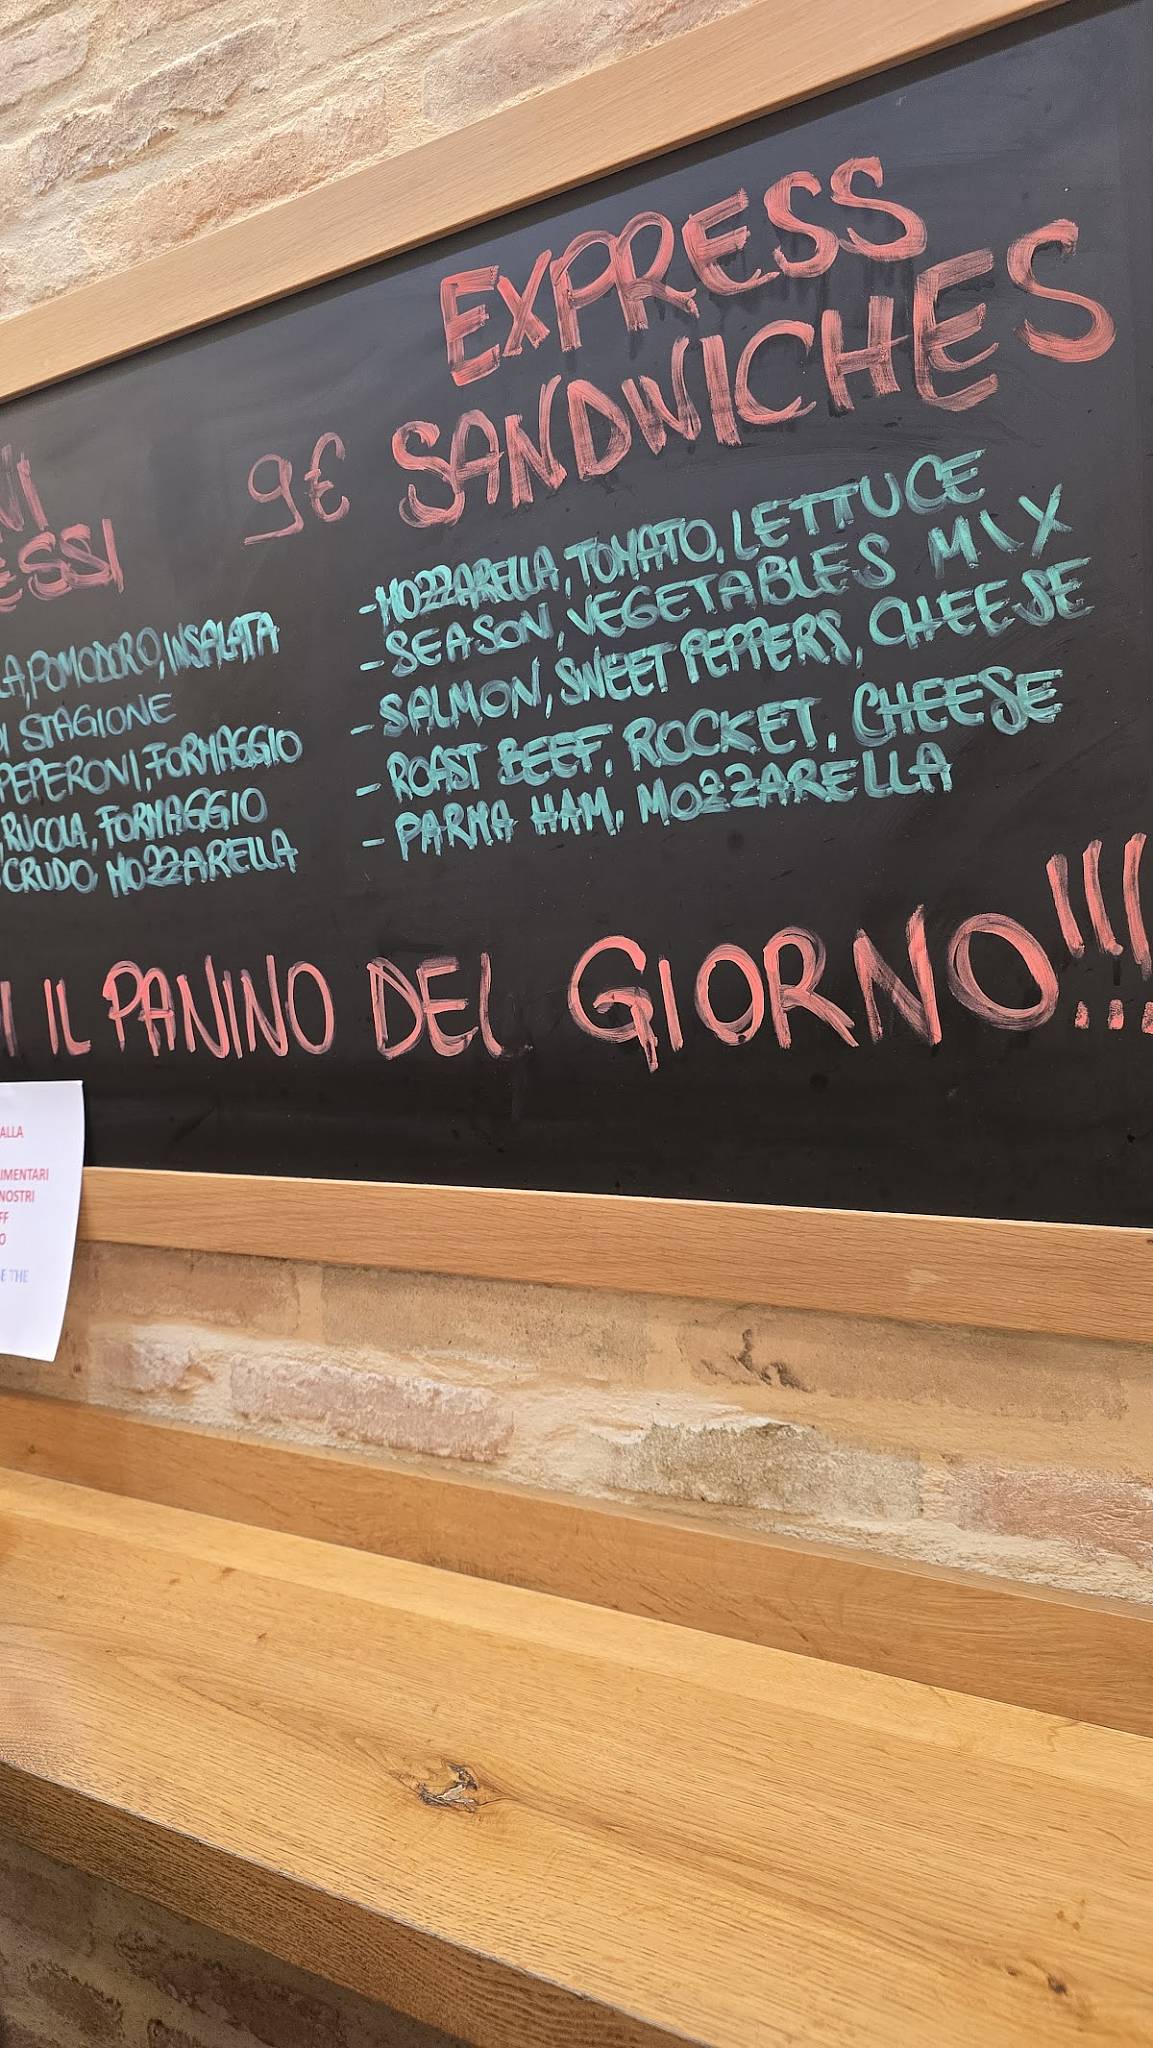 EXPRESS
9€ SANDWICHES
NI
ESSI
- MOZZARELLA, TOMATO, LETTUCE
- SEASON, VEGETABLES MIX
- SALMON, SWEET PEPPERS, CHEESE
- ROAST BEEF, ROCKET, CHEESE
- PARMA HAM, MOZZARELLA
LA, POMODORO, INSALATA
DI STAGIONE
PEPERONI, FORMAGGIO
, RUCOLA, FORMAGGIO
CRUDO MOZZARELLA
I IL PANINO DEL GIORNO!!!
ALLA
IMENTARI
NOSTRI
FF
O
E THE